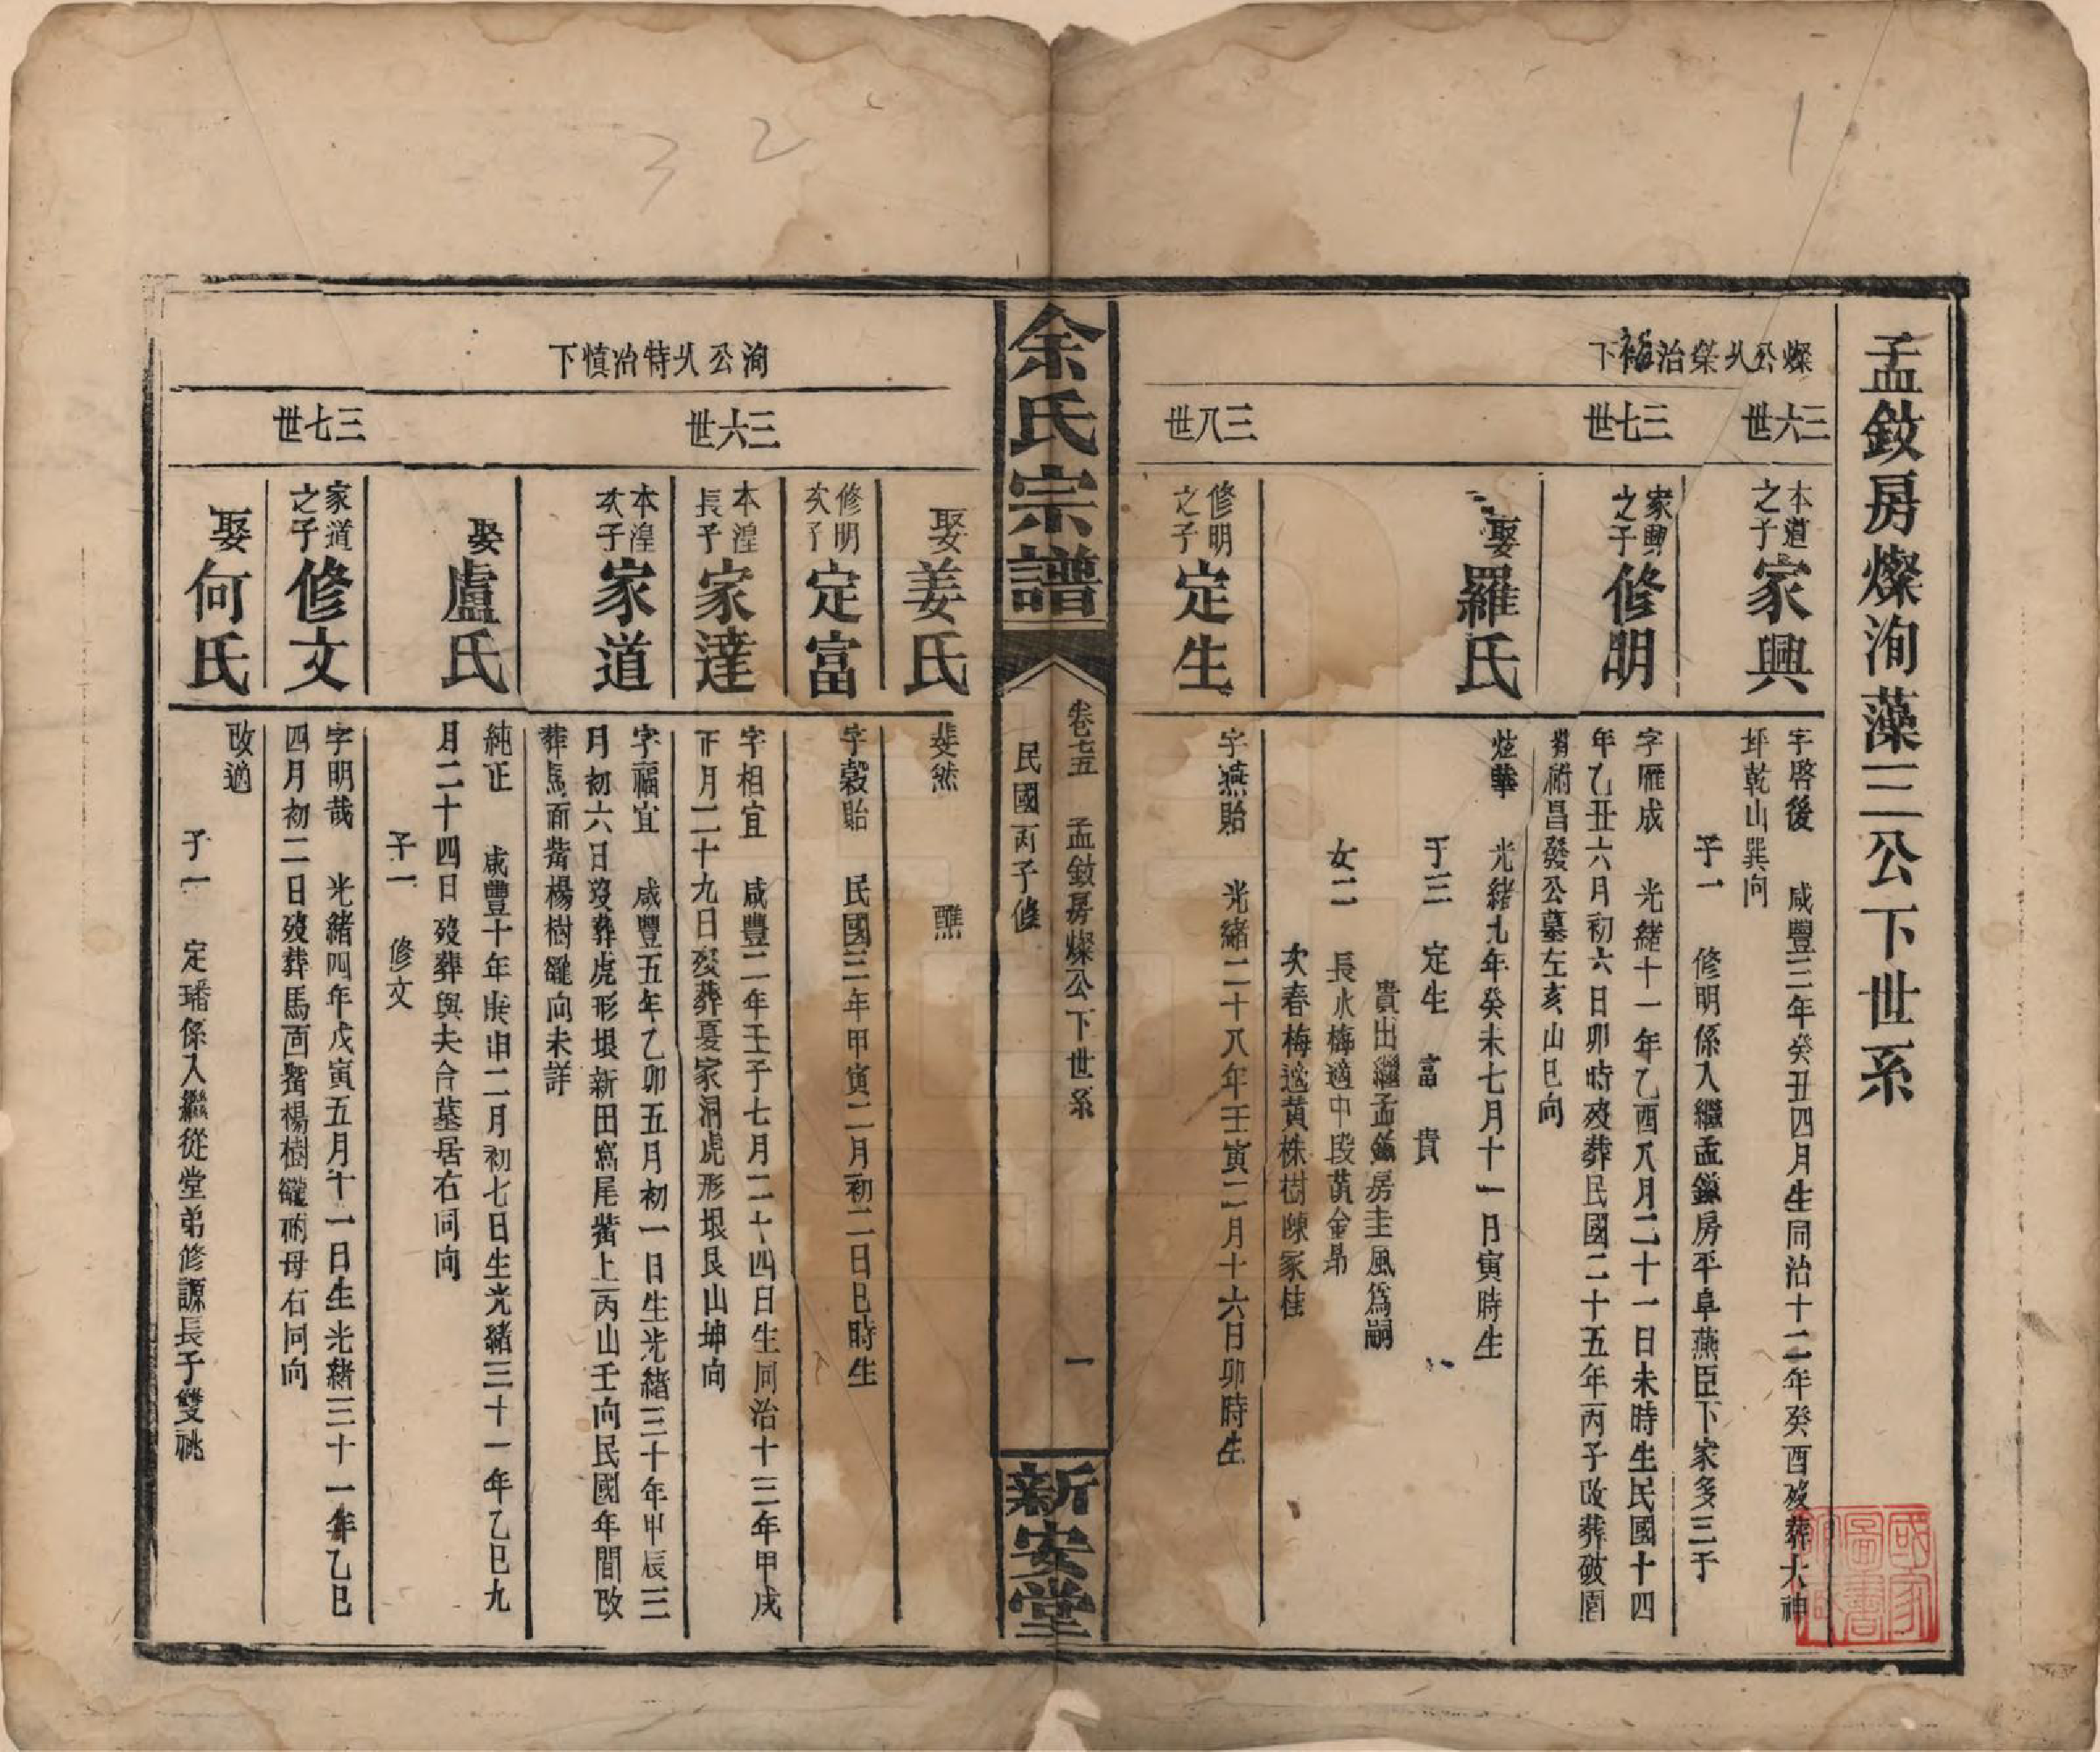 孟欽房燦洵藻三公下世系
燦公从榮治福下
三六世
本道之子 家興
字啓後 咸豐三年癸丑四月生同治十二年癸酉歿葬大神
坪乾山巽向
子一 修明係入繼孟鎰房平阜燕臣下家多三子
三七世
家興之子 修明
字雁成 光緒十一年乙酉八月二十一日未時生民國十四
年乙丑六月初六日卯時歿葬民國二十五年丙子改葬破園
背術昌發公墓左亥山巳向
娶羅氏
炫華 光緒九年癸未七月十一日寅時生
子三 定生 富 貴
貴出繼孟鎰房圭風爲嗣
女二 長水梅適中段黃金昴
次春梅適黃株樹陳家桂
三八世
修明之子 定生
字燕貽 光緒二十八年壬寅二月十六日卯時生
余氏宗譜
卷 孟欽房燦公下世系 一
民國丙子修
新安堂
娶姜氏
斐然 醮
修明次子 定富
字穀貽 民國三年甲寅二月初二日巳時生
洵公从特治慎下
三六世
本湟長子 家達
字相宜 咸豐二年壬子七月二十四日生同治十三年甲戌
正月二十九日歿葬夏家洞虎形垠艮山坤向
本湟次子 家道
字福宜 咸豐五年乙卯五月初一日生光緒三十年甲辰三
月初六日歿葬虎形垠新田窩尾嘴上丙山壬向民國年間改
葬馬面嘴楊樹 向未詳
娶盧氏
純正 咸豐十年庚申二月初七日生光緒三十一年乙巳九
月二十四日歿葬與夫合墓居右同向
子一 修文
三七世
家道之子 修文
字明哉 光緒四年戊寅五月十一日生光緒三十一年乙巳
四月初二日歿葬馬面嘴楊樹 祔母右同向
娶何氏
改適
子一 定璠係入繼從堂弟修謜長子雙祧
國家圖書館